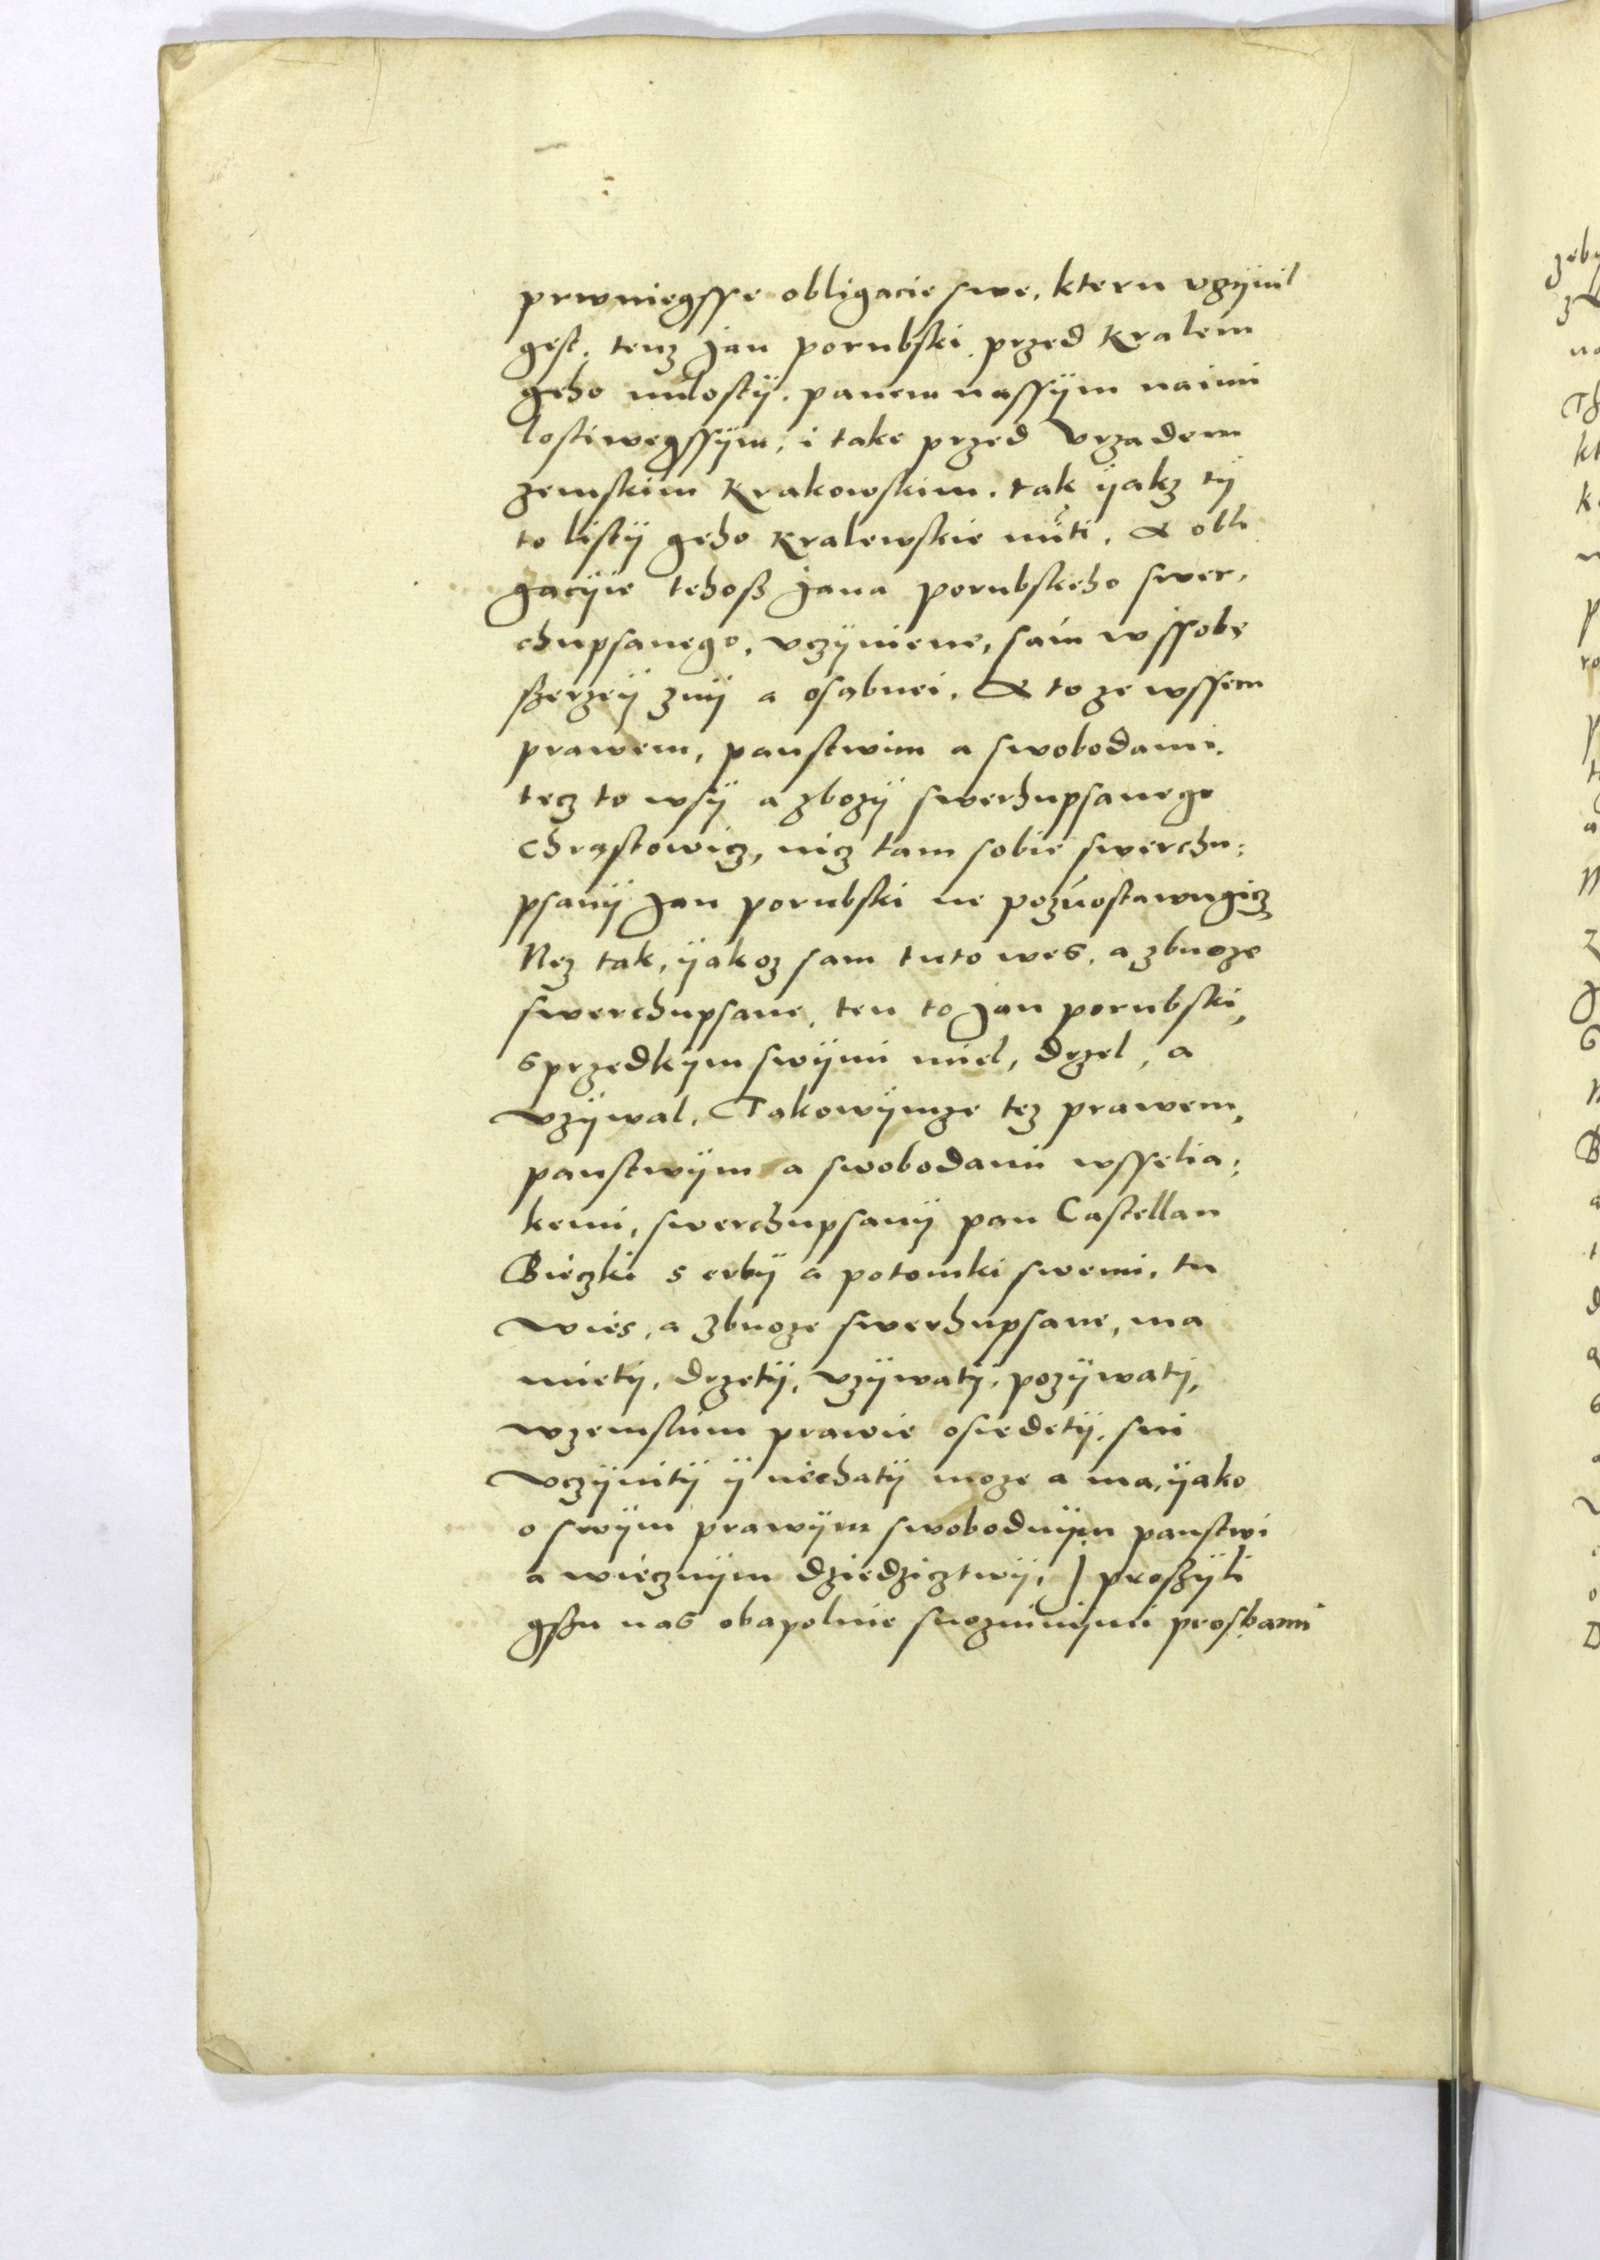 prwniegsse obligacie swe, kteru vczynil
gest, tenz Jan porubski przed Kralem
geho milostÿ. panem nassÿm naimi
lostiwegssÿm, i take przed Vrzadem
zemskim Krakowskim. tak ÿakz tÿ
to listÿ geho Kralewskie mti. & obli
gacÿie tehoß Jana porubskeho swer,
chupsanego, vczyniene, sam w ssobe
sserzeÿ znÿ a osabnei. & to ze wssem
prawem, panstwim a swobodami.
tecz to wsÿ a zbozÿ swerhupsanego
Chrastowicz, nicz tam sobie swerchu:
psanÿ Jan porubski ne pozuostawugicz
Nez tak, ÿakoz sam tuto wes, a zbuoze
swerchupsane, ten to Jan porubski,
s przedkym swÿmi miel, drzel, a
vzÿwal. Takowÿmze tez prawem,
panstwÿm a swobodami wsselia:
kemi, swerchupsanÿ pan Castellan
Bieczki s erbÿ a potomki swemi, tu
wies, a zbuoze swerhupsane, ma
mietÿ, drzetÿ, vzÿwatÿ, pozÿwatÿ,
w zemskim prawie osiedetÿ. sni
vczÿnitÿ ÿ niechatÿ moze a ma, ÿako
o swÿm prawÿm swobodnÿm panstwi
a wiecznÿm dziedzicztwÿ, J proszÿli
gszu nas obapolnie snoznimÿmi prosbami
zeby